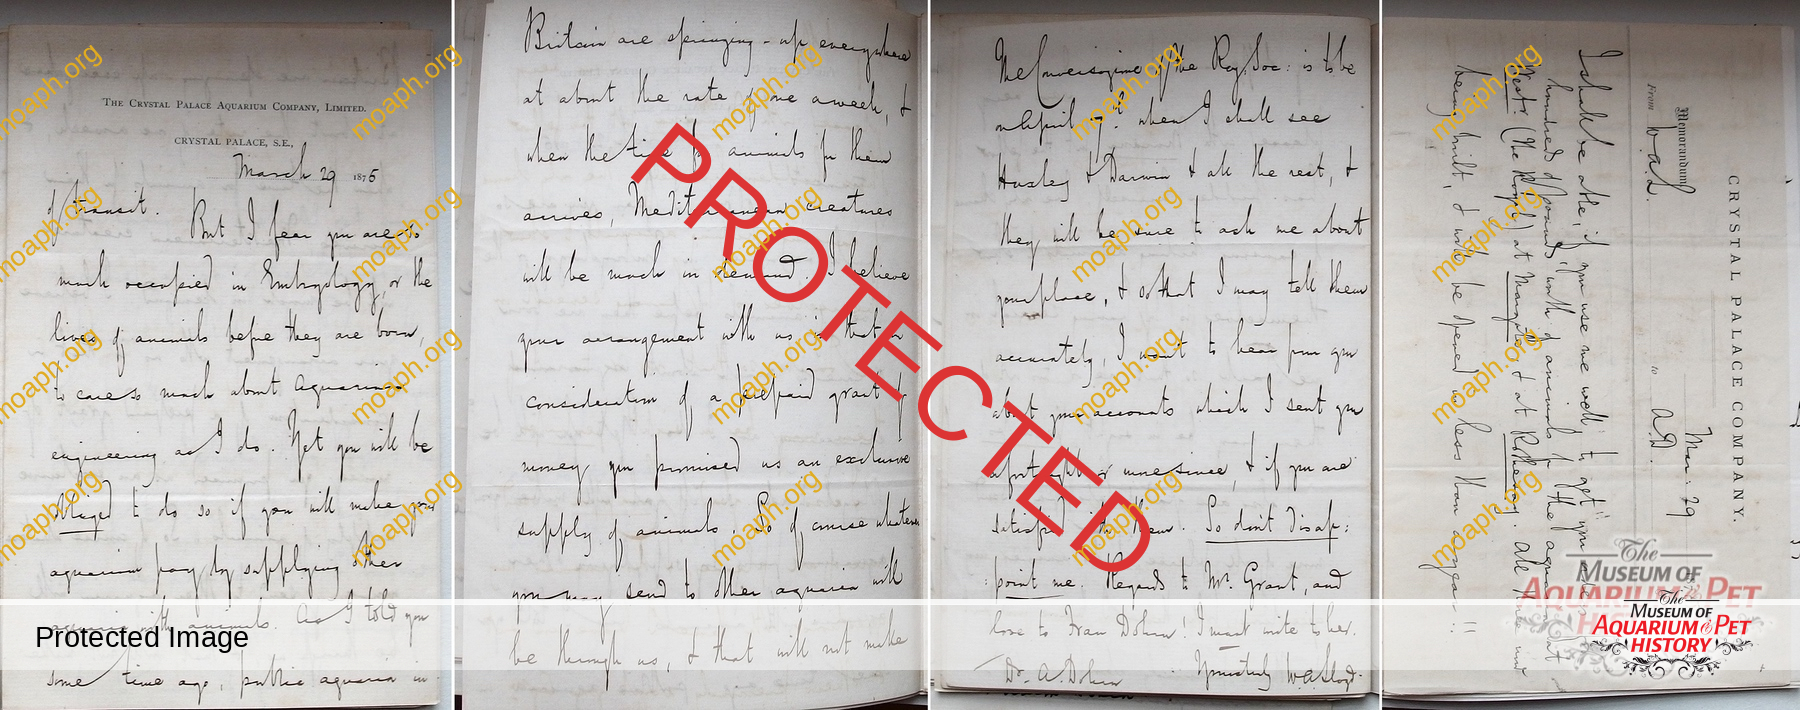 THE CRYSTAL PALACE AQUARIUM COMPANY, LIMITED.
CRYSTAL PALACE, S.E.,
March 29 1875
of transit. But I fear you are so
much occupied in Embryology, or the
lives of animals before they are born,
to care so much about aquarium
engineering as I do. Yet you will be
obliged to do so if you will make your
aquarium pay by supplying other
aquaria with animals. As I told you
some time ago, public aquaria in
Britain are springing-up everywhere
at about the rate of one a week, &
when the time for animals for them
arrives, Mediterranean creatures
will be much in demand. I believe
your arrangement with us is that in
consideration of a prepaid grant of
money you promised us an exclusive
supply of animals. So of course whatever
you may send to other aquaria will
be through us, & that will not make
The Conversazione of the Roy. Soc: is to be
on April 7? when I shall see
Huxley & Darwin & all the rest, &
they will be sure to ask me about
your place, & so that I may tell them
accurately, I want to hear from you
about your accounts which I sent you
a fortnight or more since, & if you are
satisfied with them. So don't disap:
:point me. Regards to Mr. Grant, and
love to Frau Dohrn! I must write to her.
Dr. A. Dohrn Yours truly W.A. Lloyd.
CRYSTAL PALACE COMPANY.
Memorandum
Mar. 29
From W.A.L. to A.D.
I shall be able, if you use me well, to get you
hundreds of pounds worth of animals for the aquaria at
(The Royal) at Margate, & at Rothesay. All are now
being built, & will be opened in less than a year!!
PROTECTED
Protected Image
The
MUSEUM OF
AQUARIUM & PET
HISTORY
moaph.org